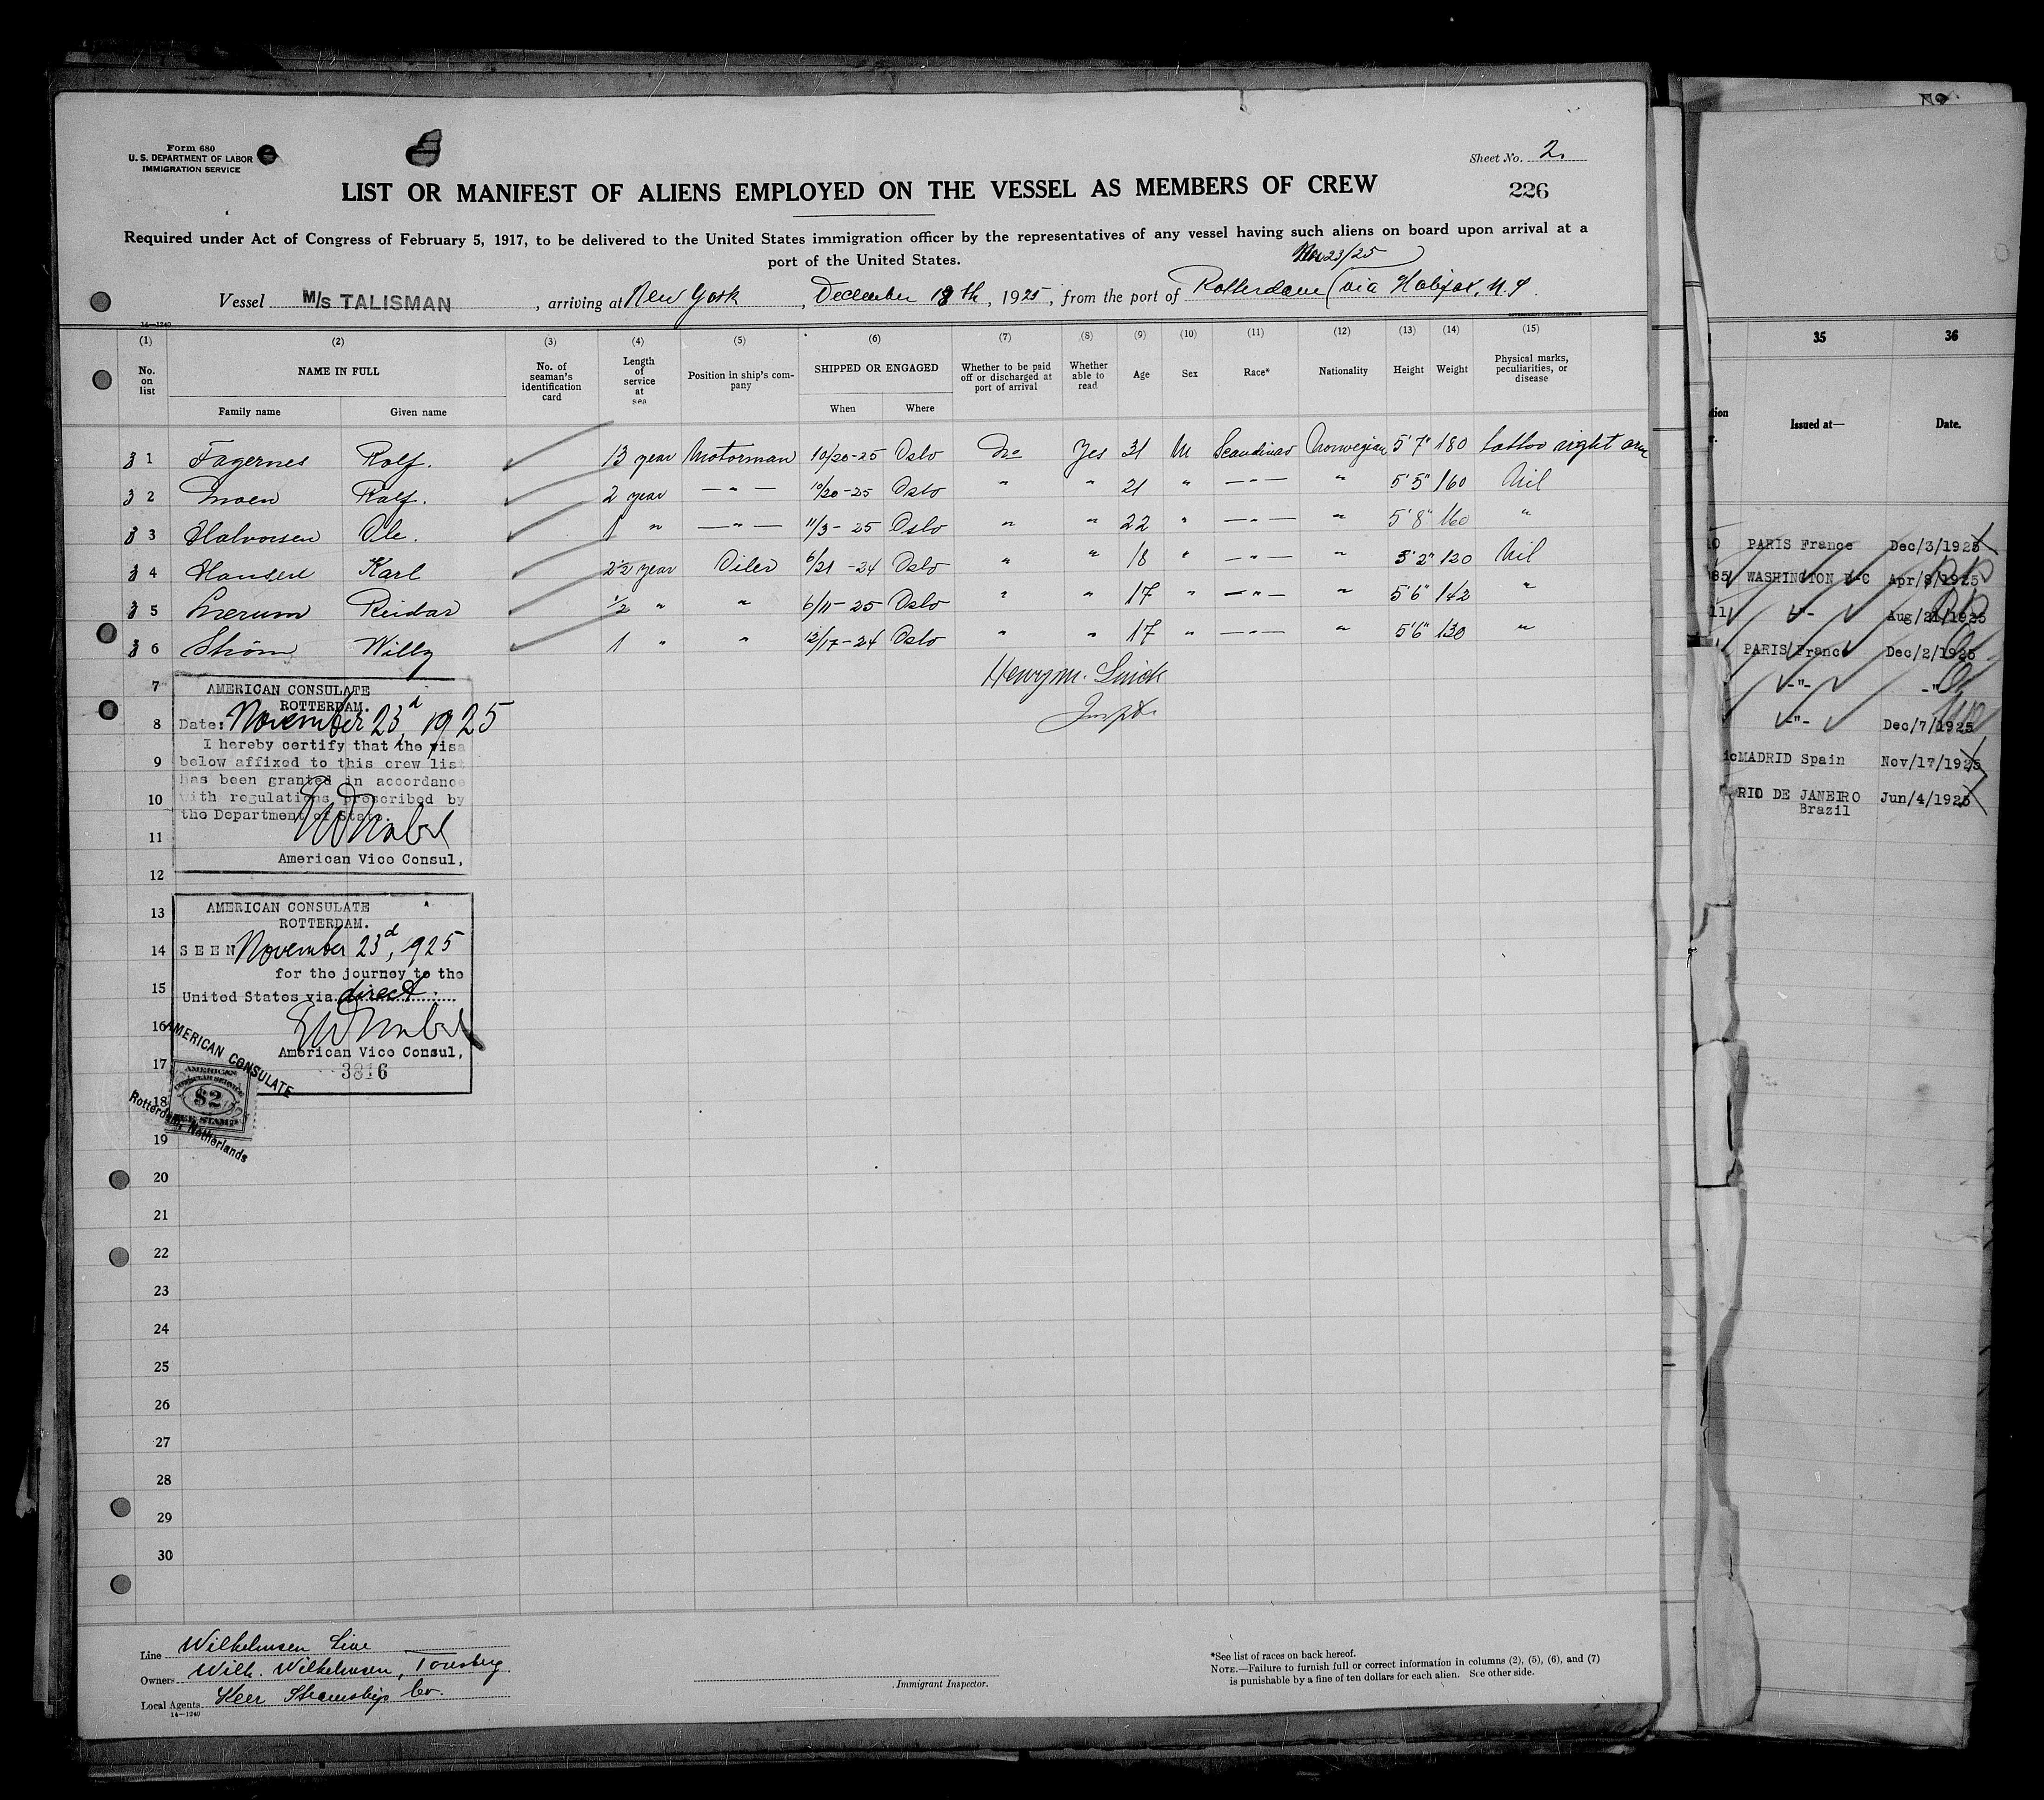 Form 680
U. S. DEPARTMENT OF LABOR
IMMIGRATION SERVICE
Sheet No. 2.
LIST OR MANIFEST OF ALIENS EMPLOYED ON THE VESSEL AS MEMBERS OF CREW
226
Required under Act of Congress of February 5, 1917, to be delivered to the United States immigration officer by the representatives of any vessel having such aliens on board upon arrival at a
port of the United States.
Nov 23/25
Vessel M/S TALISMAN, arriving at New York, December 18th, 1925, from the port of Rotterdam (via Halifax, N.S.
14—1240
(1) (2) (3) (4) (5) (6) (7) (8) (9) (10) (11) (12) (13) (14) (15)
No. on list
NAME IN FULL
Family name
Given name
No. of seaman's identification card
Length of service at sea
Position in ship's company
SHIPPED OR ENGAGED
When
Where
Whether to be paid off or discharged at port of arrival
Whether able to read
Age
Sex
Race*
Nationality
Height
Weight
Physical marks, peculiarities, or disease
3 1 Fagernes Rolf. 13 year Motorman 10/20-25 Oslo No Yes 31 M Scandinav Norwegian 5'7" 180 tattoo right arm
3 2 Moen Rolf. 2 year — " — 10/20-25 Oslo " " 21 " — " — " 5'5" 160 Nil
3 3 Halvorsen Ole. 1 " — " — 11/3-25 Oslo " " 22 " — " — " 5'8" 160 "
3 4 Hansen Karl 2½ year Oiler 6/21-24 Oslo " " 18 " — " — " 5'2" 120 Nil
3 5 Reidar ½ " " 6/11-25 Oslo " " 17 " — " — " 5'6" 142 "
3 6 Strøm Willy 1 " " 12/17-24 Oslo " " 17 " — " — " 5'6" 130 "
Henry M.
Inspt.
7
8
9
10
11
12
AMERICAN CONSULATE
ROTTERDAM.
Date: November 23d, 1925
I hereby certify that the visa
below affixed to this crew list
has been granted in accordance
with regulations prescribed by
the Department of State.
American Vice Consul,
13
14
15
16
17
18
AMERICAN CONSULATE
ROTTERDAM.
SEEN November 23d, 1925
for the journey to the
United States via direct.
American Vice Consul,
3816
AMERICAN CONSULATE
AMERICAN
CONSULAR SERVICE
$2
FEE STAMP
Rotterdam, Netherlands
19
20
21
22
23
24
25
26
27
28
29
30
Line Wilhelmsen Line
Owners Wilh. Wilhelmsen, Tonsberg
Local Agents Steamship Co.
14—1240
Immigrant Inspector.
*See list of races on back hereof.
NOTE.—Failure to furnish full or correct information in columns (2), (5), (6), and (7)
is punishable by a fine of ten dollars for each alien. See other side.
35 36
Issued at— Date.
PARIS France Dec/3/1925
WASHINGTON D-C Apr/8/1925
-"- Aug/21/1925
PARIS France Dec/2/1925
-"- -"-
-"- Dec/7/1925
MADRID Spain Nov/17/1925
RIO DE JANEIRO Jun/4/1925
Brazil